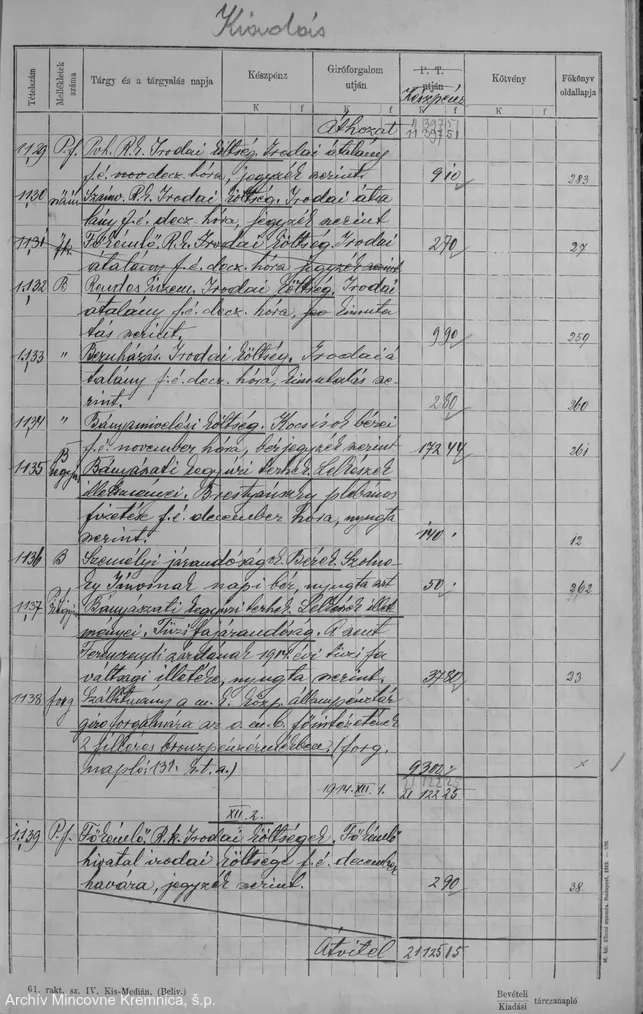 Kiadás
Tételszám
Mellékletek száma
Tárgy és a tárgyalás napja
Készpénz
Giróforgalom útján
P. T. útján
Készpénz
Kötvény
Főkönyv oldallapja
K f K f K f K f
Áthozat 11397 51
11397 51
1129 P.f. Pvh. R.k. Irodai költség. Irodai átalány
f.é. nov. decz. hóra, jegyzék szerint. 9 10 283
1130 Számv. R.k. Irodai költség. Irodai áta
lány f.é. decz. hóra, jegyzék szerint 2 70 27
1131 Főkémlő R.k. Irodai költség. Irodai
átalány f.é. decz. hóra jegyzék szerint
1132 B Rendes üzem. Irodai költség. Irodai
átalány f.é. decz. hóra, kimuta
tás szerint. 9 90 259
1133 " Beruházás. Irodai költség. Irodai á
talány f.é. decz. hóra, kimutatás sze
rint. 2 80 260
1134 " Bányamivelési költség. Kocsisok bérei
f.é. november hóra, bérjegyzék szerint 172 44 261
1135 B Bányászati kegyuri terhek. Lelkészek
illetményei. Brestyánszky plébános
fizetése f.é. december hóra, nyugta
szerint. 140 . 12
1136 B Személyi járandóságok. Bérek. Szolno
ky Jánosnak napi bér, nyugta szt 50 . 262
1137 Bányászati kegyuri terhek. Lelkészek illet
ményei. Tüzifajárandóság. A szent
Ferenczrendi zárdának 1914. évi tüzi fa
váltsági illetéke, nyugta szerint. 37 80 23
1138 forg Szállitmány a m. k. közp. állampénztár
giroforgalmára az o. m. b. főintézetének
2 filléres bronzpénzérmékben (forg.
napló: 131. k.t.a.) 9300 . ×
21 122 25
1914. XII. 1. 21 122 25
XII. 2.
1139 P.f. "Főkémlő" R.k. Irodai költségek. "Főkémlő"
hivatal irodai költsége f.é. december
havára, jegyzék szerint. 2 90 38.
Átvitel 21125 15
61. rakt. sz. IV. Kis-Medián. (Beliv.)
Bevételi
Kiadási tárczanapló
Archív Mincovne Kremnica, š.p.